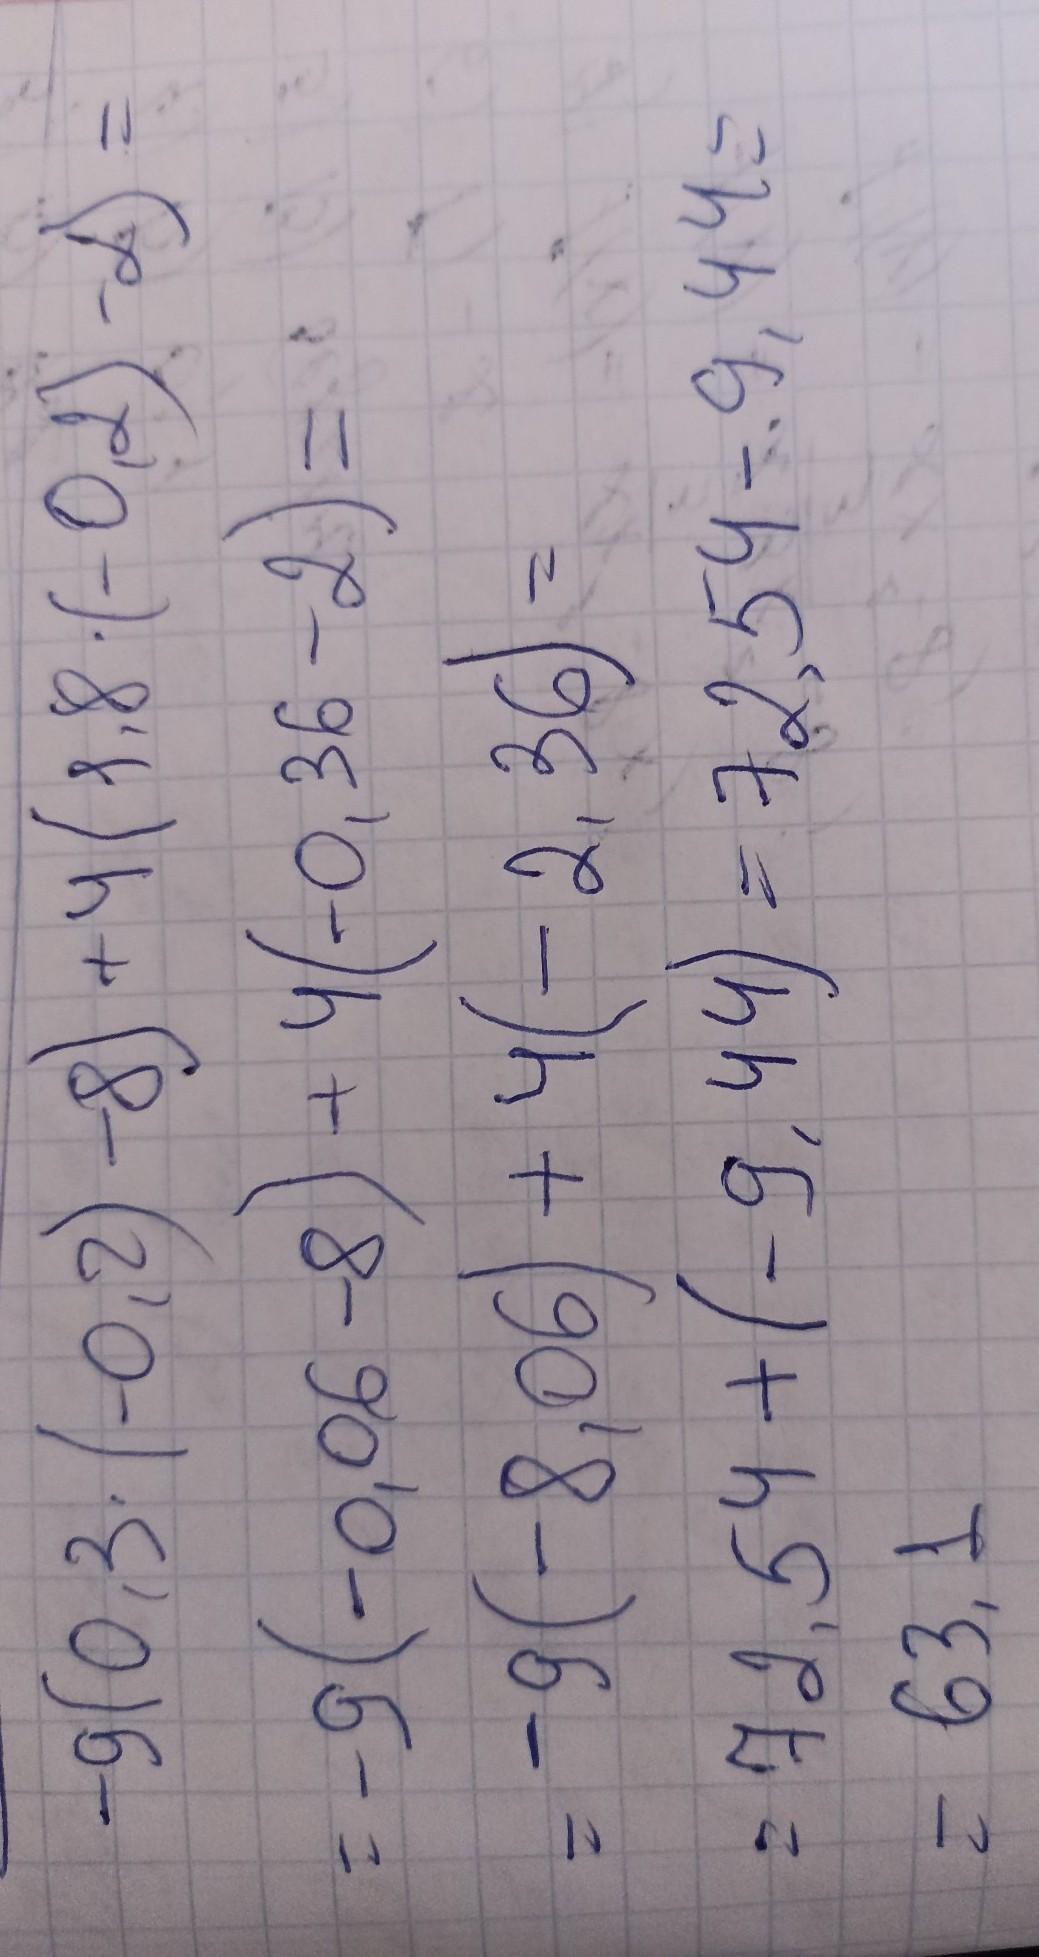 -9(0,3·(-0,2)-8)+4(1,8·(-0,2)-2)=
=-9(-0,06-8)+4(-0,36-2)=
=-9(-8,06)+4(-2,36)=
=72,54+(-9,44)=72,54-9,44=
=63,1